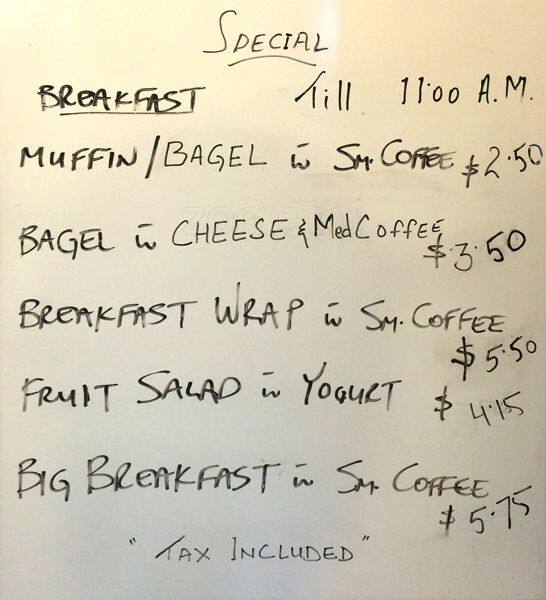 SPECIAL
BREAKFAST Till 11:00 A.M.
MUFFIN/BAGEL w̄ SM. COFFEE $2.50
BAGEL w̄ CHEESE & Med COFFEE $3.50
BREAKFAST WRAP w̄ SM. COFFEE
$5.50
FRUIT SALAD w̄ YOGURT $4.15
BIG BREAKFAST w̄ SM. COFFEE
$5.75
"TAX INCLUDED"